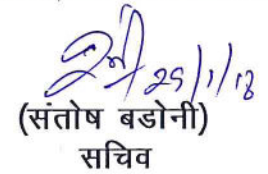 25/1/18
(संतोष बडोनी)
सचिव